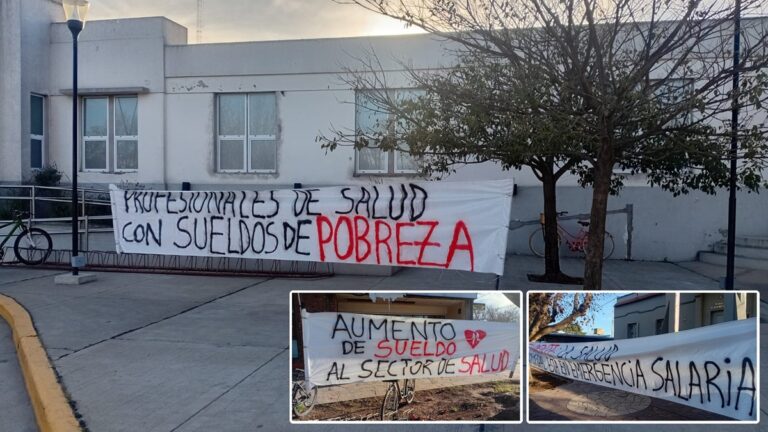 PROFESIONALES DE SALUD
CON SUELDOS DE POBREZA
AUMENTO
DE SUELDO
AL SECTOR DE SALUD
DE SALUD
EN EMERGENCIA SALARIA